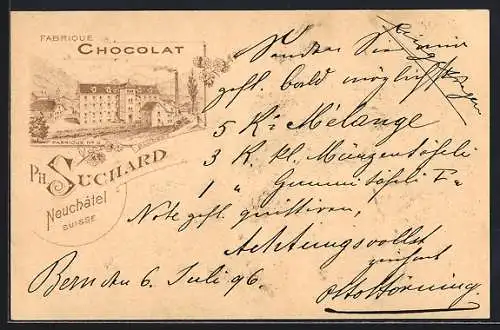 FABRIQUE
CHOCOLAT
FABRIQUE No 5
PH. SUCHARD
Neuchâtel
SUISSE
Senden Sie mir
gefl. bald möglichst
5 Ko Mélange
3 K. kl. Münzentäfeli
1 " Gummitäfeli Fa
Note gefl. quittiren,
Achtungsvollst
zeichnet
Bern den 6. Juli 96.
Otto Hörning.